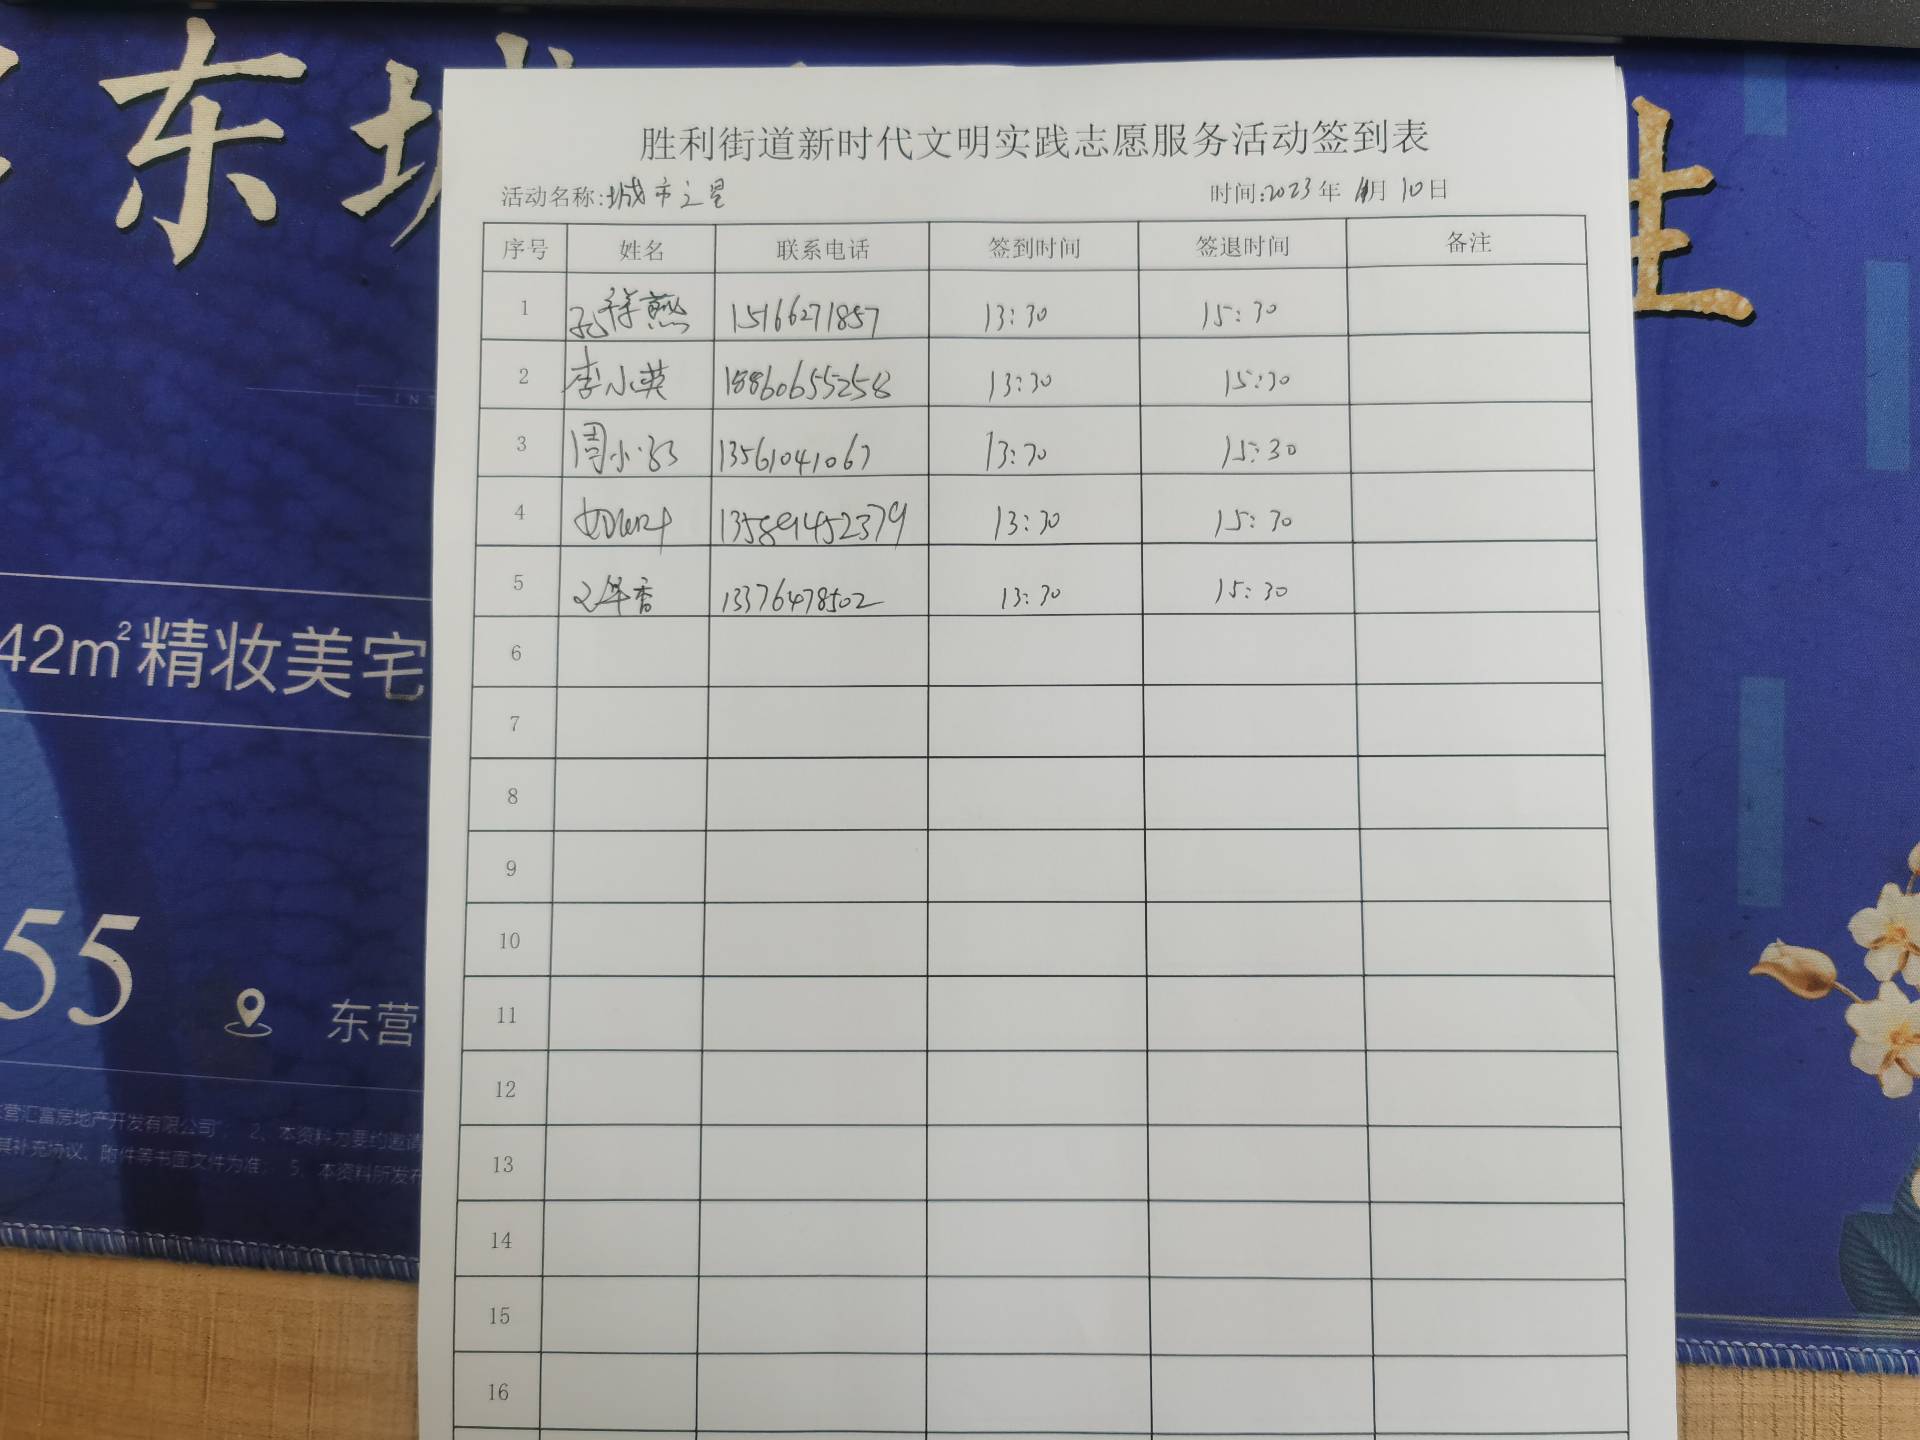 东城
胜利街道新时代文明实践志愿服务活动签到表
活动名称:城市之星 时间:2023年 11月 10日
序号 姓名 联系电话 签到时间 签退时间 备注
1 孔祥燕 15166271857 13:30 15:30
2 李小英 18860655258 13:30 15:30
3 周小 13561041067 13:30 15:30
4 135891452379 13:30 15:30
5 香 13376478502 13:30 15:30
6
7
8
9
10
11
12
13
14
15
16
42m²精妆美宅
55
东营
营汇富房地产开发有限公司 2、本资料为要约邀请
其补充协议、附件等书面文件为准; 5、本资料所发布